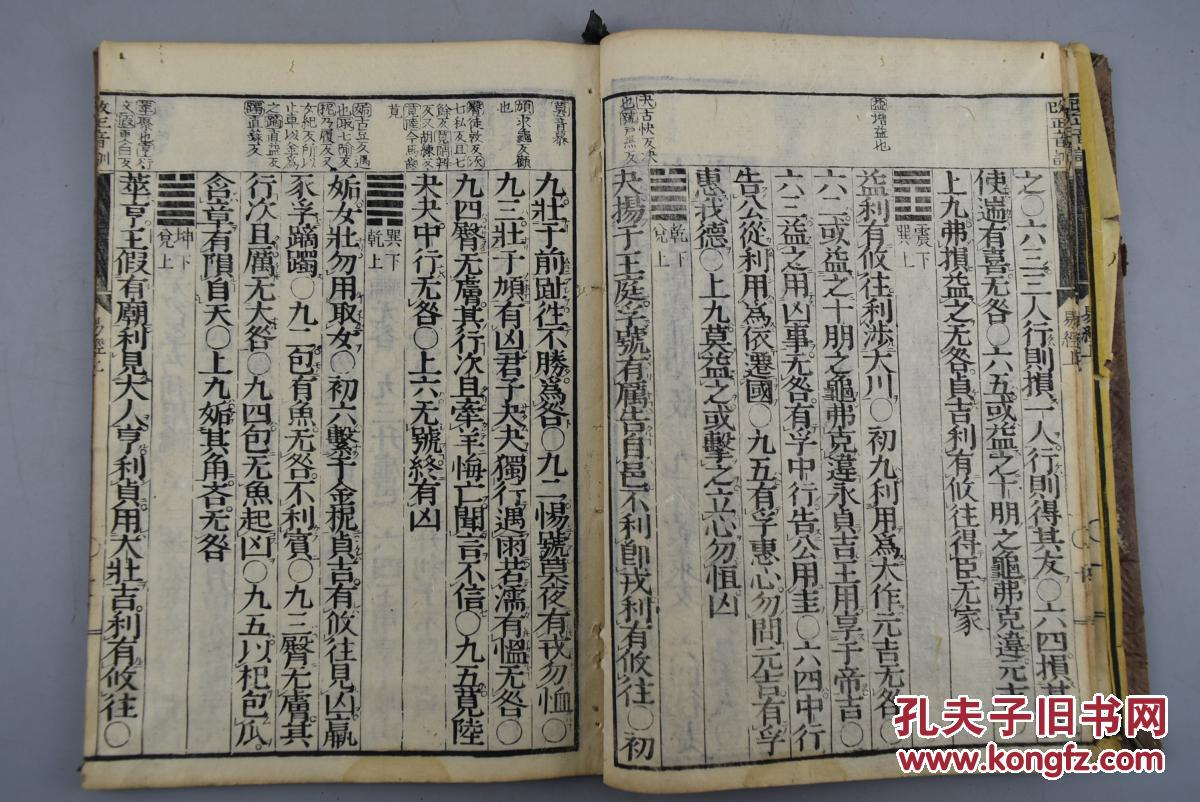 益增益也
夬古快反決
之○六三三人行則損一人一人行則得其友○六四損其
使遄有喜无咎○六五或益之十朋之龜弗克違元吉
上九弗損益之无咎貞吉利有攸往得臣无家
震下
巽上
益利有攸往利涉大川○初九利用爲大作元吉无咎○
六二或益之十朋之龜弗克違永貞吉王用享于帝吉○
六三益之用凶事无咎有孚中行告公用圭○六四中行
告公從利用爲依遷國○九五有孚惠心勿問元吉有孚
惠我德○上九莫益之或擊之立心勿恒凶
乾下
兌上
夬揚于王庭孚號有厲告自邑不利卽戎利有攸往○初
易經上
莫音暮
頄求龜反顴
也
莧
九壯于前趾往不勝爲咎○九二惕號莫夜有戎勿恤○
九三壯于頄有凶君子夬夬獨行遇雨若濡有慍无咎○
九四臀无膚其行次且牽羊悔亡聞言不信○九五莧陸
夬夬中行无咎○上六无號終有凶
巽下
乾上
姤女壯勿用取女○初六繫于金柅貞吉有攸往見凶羸
豕孚蹢躅○九二包有魚无咎不利賓○九三臀无膚其
行次且厲无大咎○九四包无魚起凶○九五以杞包瓜
含章有隕自天○上九姤其角吝无咎
坤下
兌上
萃亨王假有廟利見大人亨利貞用大牲吉利有攸往○
改正音訓
易經上
孔夫子旧书网
www.kongfz.com